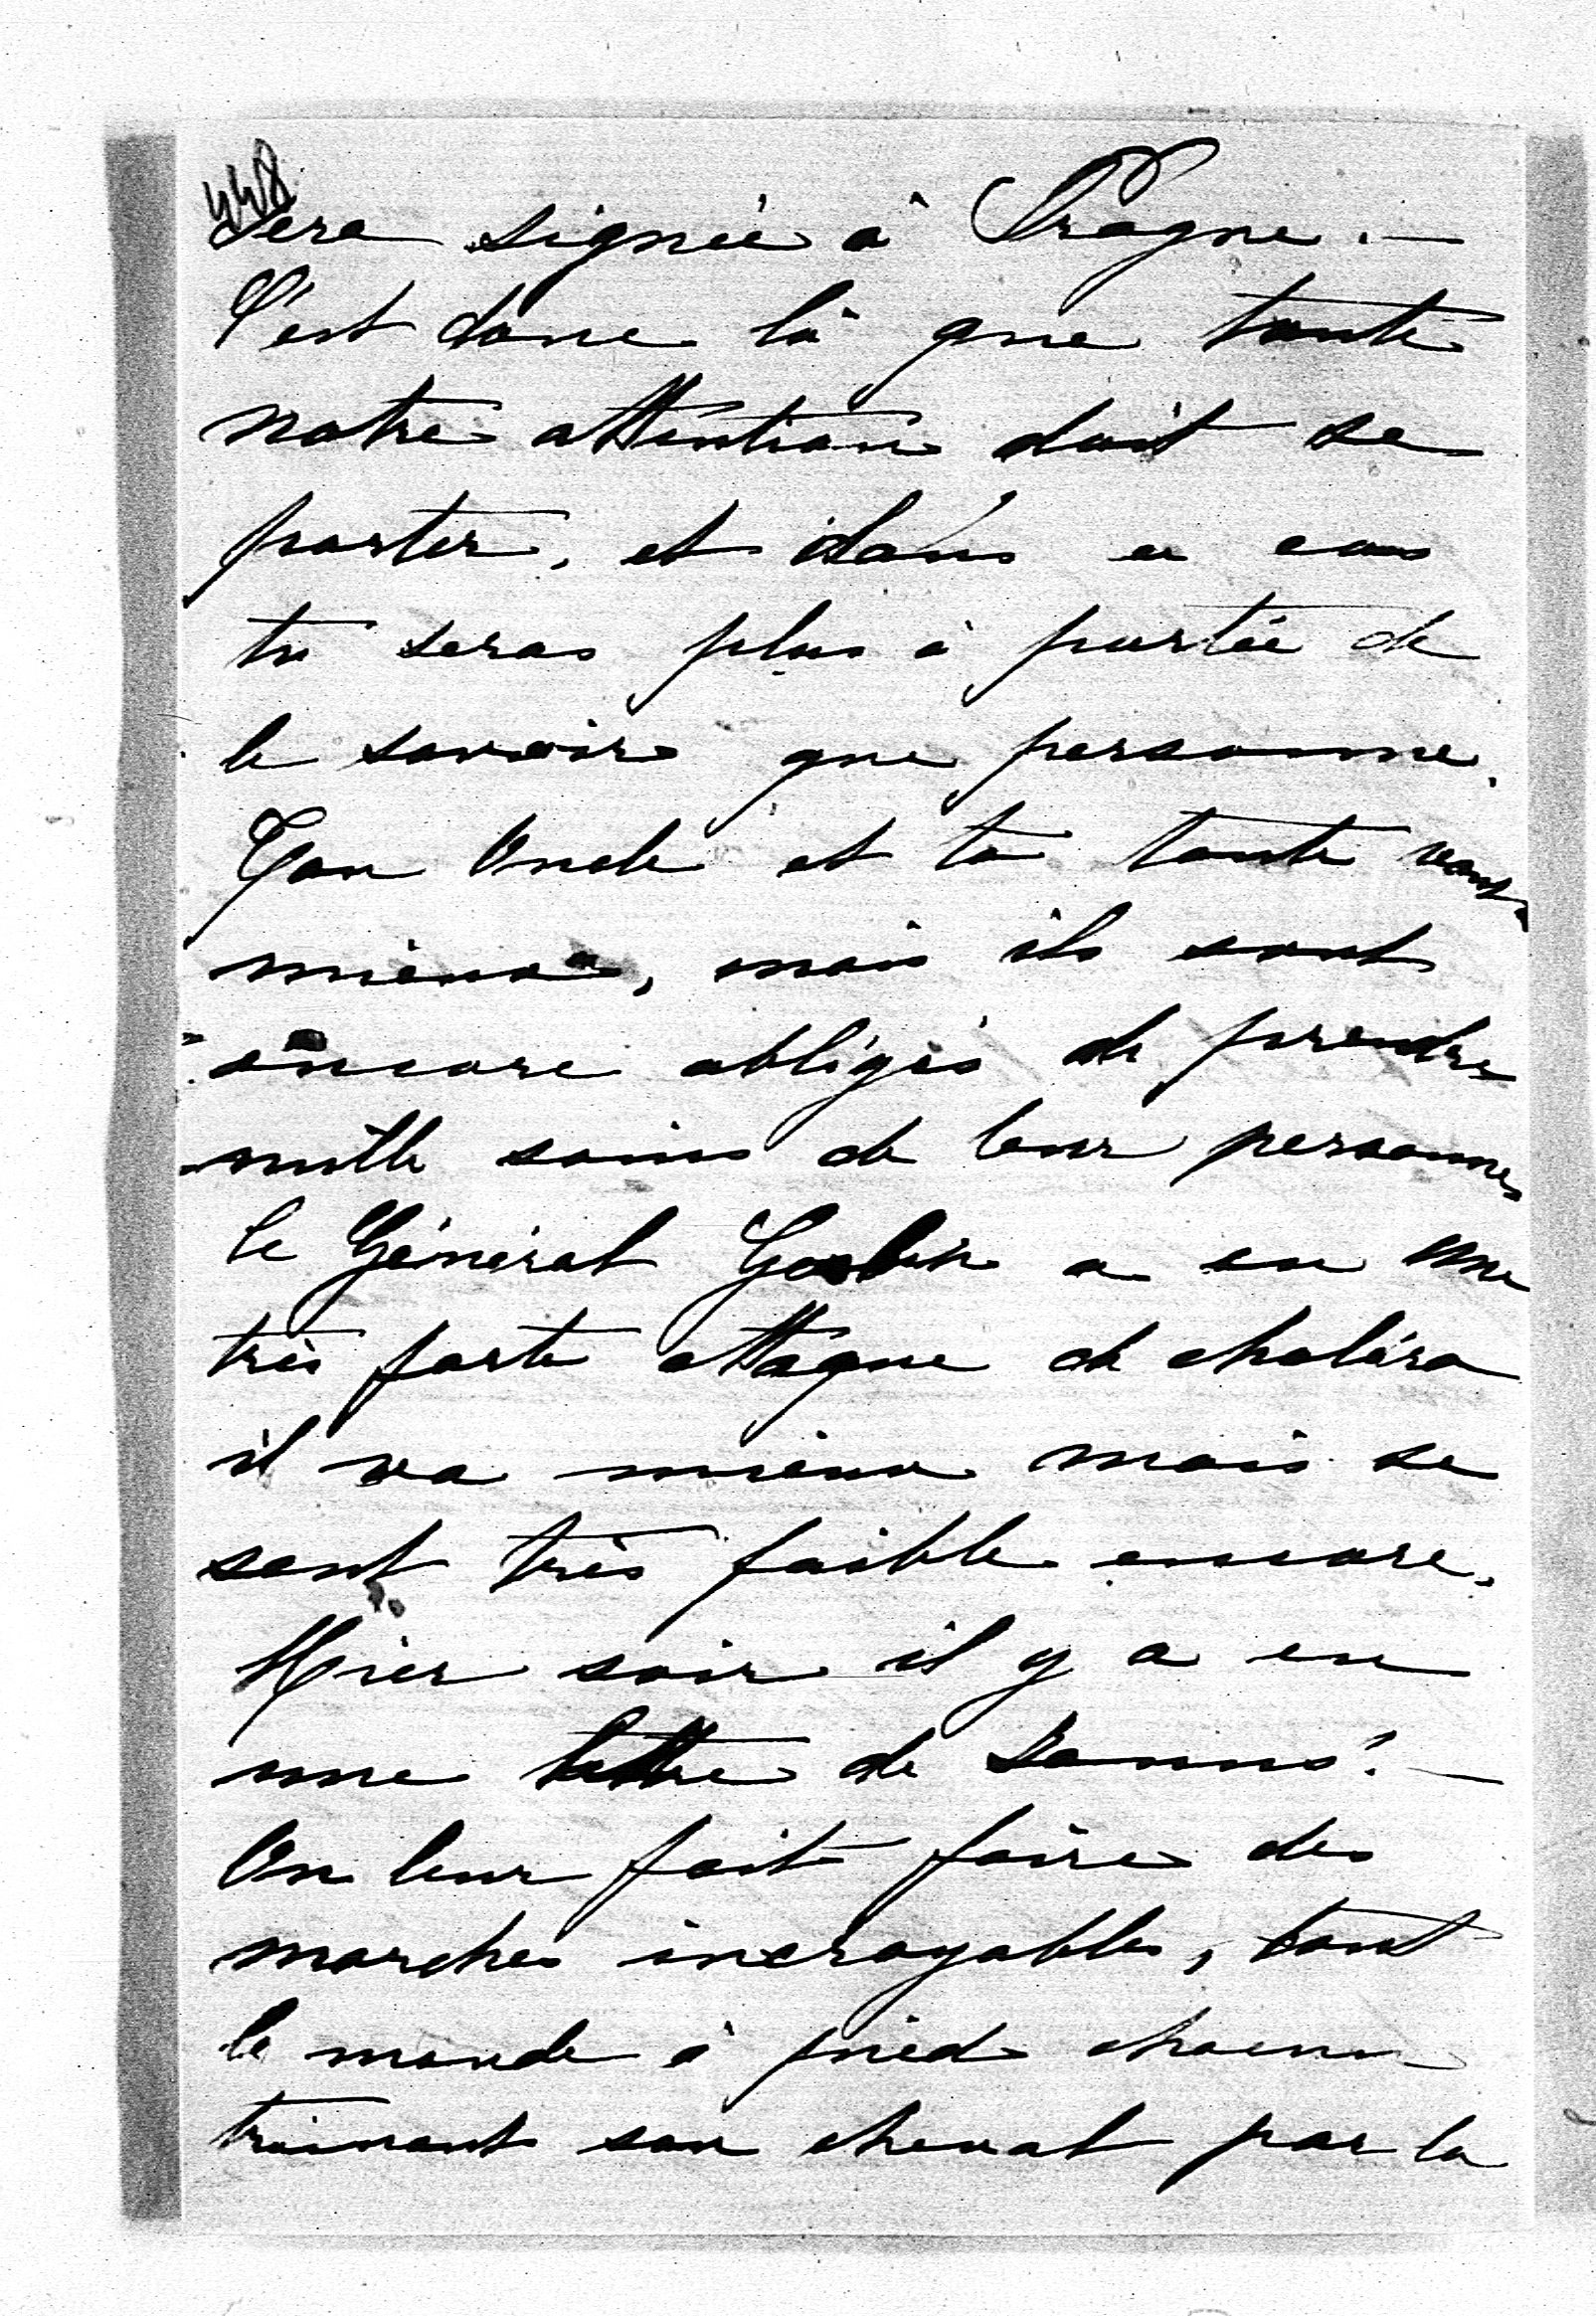 448
sera signée à Prague. —
C'est donc là que toute
notre attention doit se
porter, et dans ce cas
tu seras plus à portée de
le savoir que personne.
Ton Oncle et ta tante vont
mieux, mais ils sont
encore obligés de prendre
mille soins de leur personnes
le Général a eu une
très forte attaque de choléra
il va mieux mais se
sent très faible encore.
Hier soir il y a eu
une lettre de —
On leur fait faire des
marches incroyables, tout
le monde à pied chacun
trainant son cheval par la